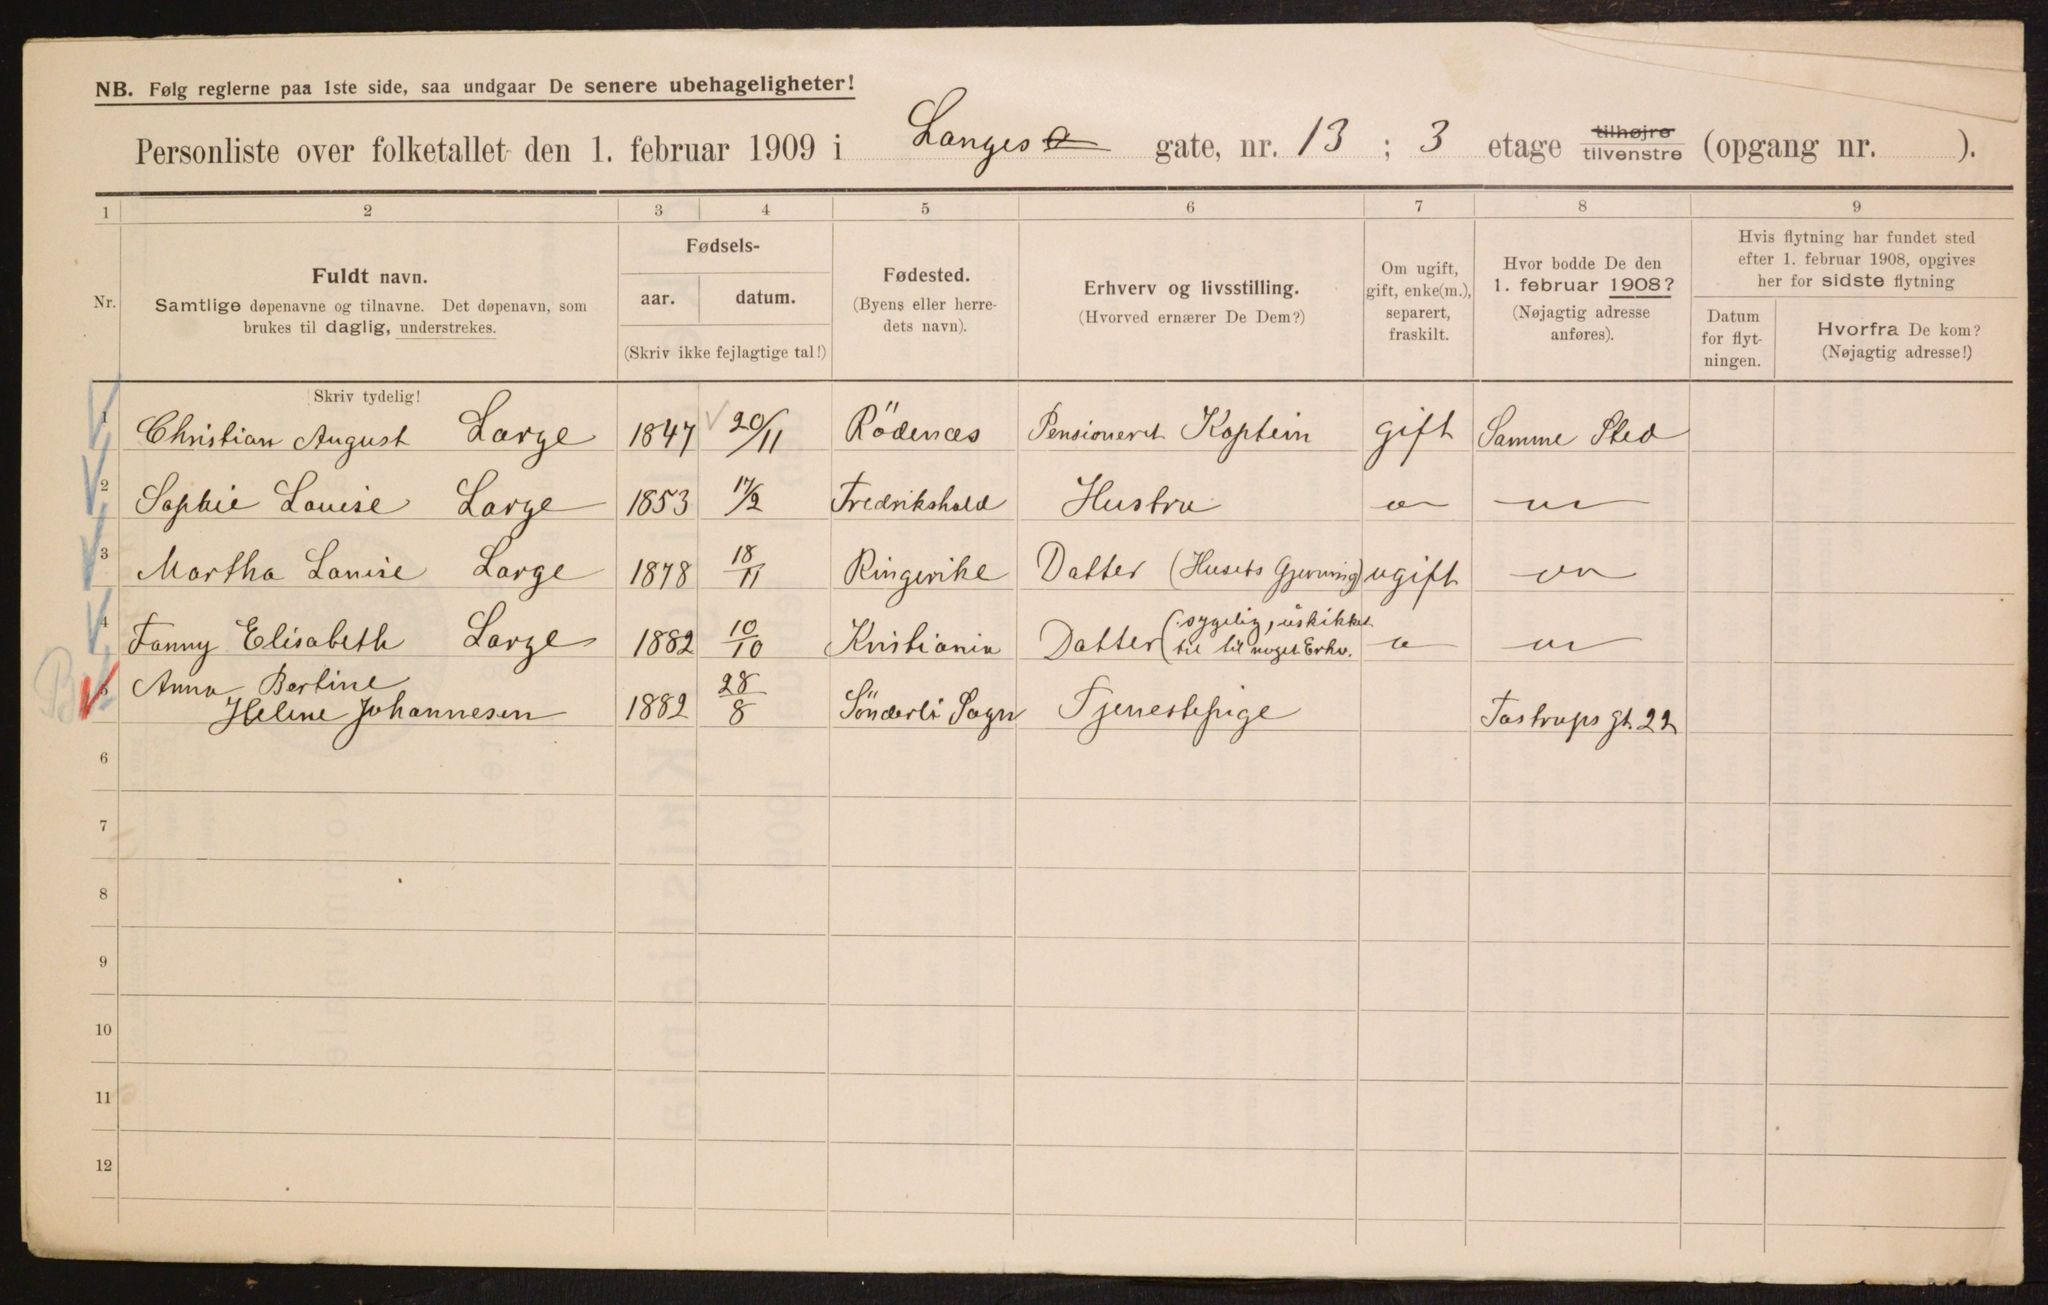 NB. Følg reglerne paa 1ste side, saa undgaar De senere ubehageligheter!
Personliste over folketallet den 1. februar 1909 i Langes gate, nr. 13 ; 3 etage tilhøjre tilvenstre (opgang nr. ).
1 2 3 4 5 6 7 8 9
Nr.
Fuldt navn.
Samtlige døpenavne og tilnavne. Det døpenavn, som
brukes til daglig, understrekes.
Fødsels-
aar. datum.
(Skriv ikke fejlagtige tal!)
Fødested.
(Byens eller herre-
dets navn).
Erhverv og livsstilling.
(Hvorved ernærer De Dem?)
Om ugift,
gift, enke(m.),
separert,
fraskilt.
Hvor bodde De den
1. februar 1908?
(Nøjagtig adresse
anføres).
Hvis flytning har fundet sted
efter 1. februar 1908, opgives
her for sidste flytning
Datum
for flyt-
ningen.
Hvorfra De kom?
(Nøjagtig adresse!)
Skriv tydelig!
1 Christian August Large 1847 20/11 Rödenæs Pensioneret Kaptein gift Samme Sted
2 Sophie Louise Large 1853 17/2 Fredrikshald Hustru
3 Martha Louise Large 1878 18/11 Ringerike Datter (Husets Gjerning) ugift
4 Fanny Elisabeth Large 1882 10/10 Kristiania Datter (sygelig, uskikket
til til noget Erhv.
5 Anna Bertine
Helene Johannesen 1882 28/8 Sönderli Sogn Tjenestepige Tostrups gt. 22
6
7
8
9
10
11
12